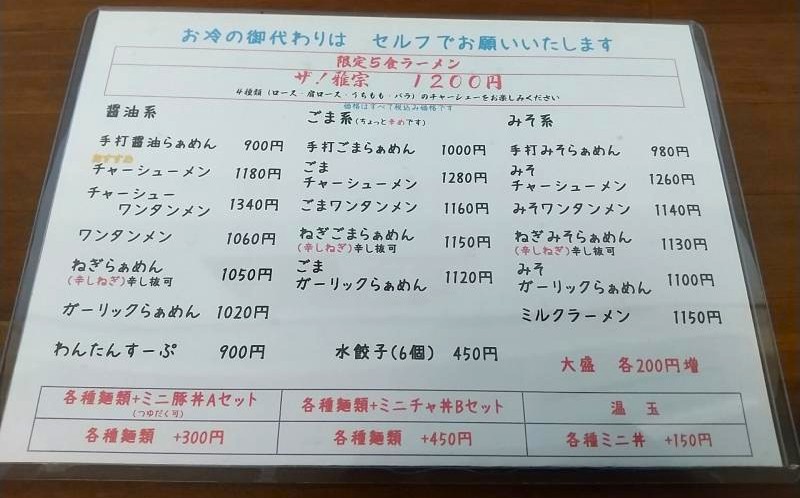 お冷の御代わりは セルフでお願いいたします
限定5食ラーメン
ザ!雅宗 1200円
4種類(ロース・肩ロース・うちもも・バラ)のチャーシューをお楽しみください
価格はすべて税込み価格です
醤油系
手打醤油らぁめん 900円
おすすめ
チャーシューメン 1180円
チャーシュー
ワンタンメン 1340円
ワンタンメン 1060円
ねぎらぁめん 1050円
(辛しねぎ)辛し抜可
ガーリックらぁめん 1020円
わんたんすーぷ 900円
ごま系(ちょっと辛めです)
手打ごまらぁめん 1000円
ごま
チャーシューメン 1280円
ごまワンタンメン 1160円
ねぎごまらぁめん 1150円
(辛しねぎ)辛し抜可
ごま
ガーリックらぁめん 1120円
水餃子(6個) 450円
みそ系
手打みそらぁめん 980円
みそ
チャーシューメン 1260円
みそワンタンメン 1140円
ねぎみそらぁめん 1130円
(辛しねぎ)辛し抜可
みそ
ガーリックらぁめん 1100円
ミルクラーメン 1150円
大盛 各200円増
各種麺類+ミニ豚丼Aセット
(つゆだく可)
各種麺類 +300円
各種麺類+ミニチャ丼Bセット
各種麺類 +450円
温玉
各種ミニ丼 +150円